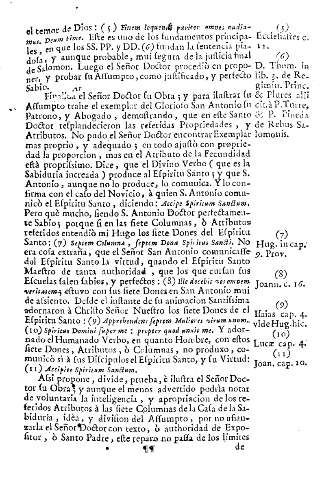 el temor de Dios: (5) Finem loquendi pariter omnes audia-
mus. Deum time. Este es uno de los fundamentos principa-
les, en que los SS. PP. y DD. (6) fundan la sentencia pia-
dosa, y aunque probable, mui segura de la justicia final
de Salomon. Luego el Señor Doctor procediò en propo-
ner, y probar su Assumpto, como justificado, y perfecto
Sabio.
Finaliza el Señor Doctor su Obra; y para ilustrar su
Assumpto trahe el exemplar del Glorioso San Antonio su
Patrono, y Abogado, demostrando, que en este Santo
Doctor resplandecieron las referidas Propriedades, y
Atributos. No pudo el Señor Doctor encontrar Exemplar
mas proprio, y adequado; en todo ajustò con proprie-
dad la proporcion, mas en el Atributo de la Fecundidad
està proprissimo. Dice, que el Divino Verbo (que es la
Sabiduria increada) produce al Espiritu Santo; y que S.
Antonio, aunque no lo produce, lo comunica. Y lo con-
firma con el caso del Novicio, à quien S. Antonio comu-
nicò el Espiritu Santo, diciendo: Accipe Spiritum Sanctum.
Pero què mucho, siendo S. Antonio Doctor perfectamen-
te Sabio; porque si en las siete Columnas, ò Atributos
referidos entendiò mi Hugo los siete Dones del Espiritu
Santo: (7) Septem Columna, septem Dona Spiritus Sancti. No
era cosa extraña, que el Señor San Antonio comunicasse
del Espiritu Santo la virtud, quando el Espiritu Santo
Maestro de tanta authoridad, que los que cursan sus
Escuelas salen sabios, y perfectos: (8) Ille docebit vos omnem
veritatem; estuvo con sus siete Dones en San Antonio mui
de assiento. Desde el instante de su animacion Santissima
adornaron à Christo Señor Nuestro los siete Dones de el
Espiritu Santo: (9) Apprehendent septem Mulieres virum unum.
(10) Spiritus Domini super me: propter quod unxit me. Y ador-
nado el Humanado Verbo, en quanto Hombre, con estos
siete Dones, Atributos, ò Columnas, no produxo, co-
municò sì à sus Discipulos el Espiritu Santo, y su Virtud:
(11) Accipite Spiritum Sanctum.
Assi propone, divide, prueba, è ilustra el Señor Doc-
tor su Obra; y aunque el menos advertido podrà notar
de voluntaria la inteligencia, y apropriacion de los re-
feridos Atributos à las siete Columnas de la Casa de la Sa-
biduria, idèa, y division del Assumpto, por no afian-
zarla el Señor Doctor con texto, ò authoridad de Expo-
sitor, ò Santo Padre, este reparo no passa de los limites
¶¶
de
(5)
Ecclesiastes c.
12.
(6)
D. Thom. in
lib. 3. de Re-
gimin. Princ.
& Plures alii
cit. à P. Torre,
& P. Pineda
de Rebus Sa-
lomonis.
(7)
Hug. in cap.
9. Prov.
(8)
Joann. c. 16.
(9)
Isaias cap. 4.
vide Hug. hic.
(10)
Lucæ cap. 4.
(11)
Joan. cap. 20.